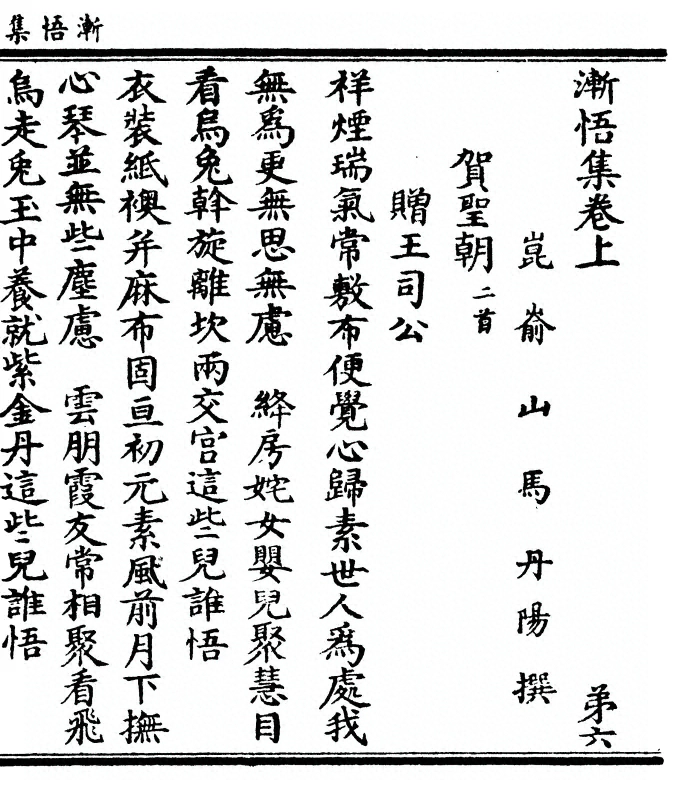 漸悟集
漸悟集卷上　弟六
崑嵛山馬丹陽撰
賀聖朝二首
贈王司公
祥煙瑞氣常敷布便覺心歸素世人爲處我
無爲更無思無慮　絳房姹女嬰兒聚慧目
看烏兔斡旋離坎兩交宮這些兒誰悟
衣裝紙襖并麻布固亘初元素風前月下撫
心琴並無些塵慮　雲朋霞友常相聚看飛
烏走兔玉中養就紫金丹這些兒誰悟